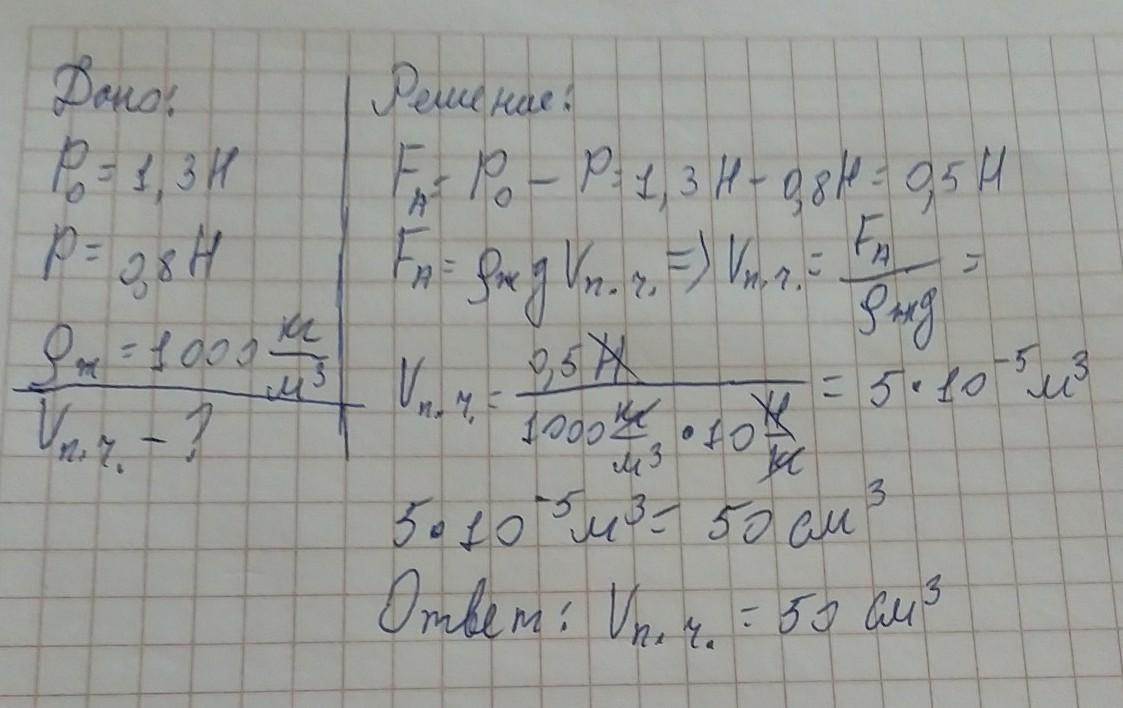 Дано:
P₀ = 1,3 Н
P = 0,8 Н
ρж = 1000 кг/м³
Vп.ч. - ?
Решение:
Fₐ = P₀ - P = 1,3 Н - 0,8 Н = 0,5 Н
Fₐ = ρж g Vп.ч. => Vп.ч. = Fₐ/ρжg =
Vп.ч. = 0,5 Н/(1000 кг/м³ • 10 Н/кг) = 5 • 10⁻⁵ м³
5 • 10⁻⁵ м³ = 50 см³
Ответ: Vп.ч. = 50 см³